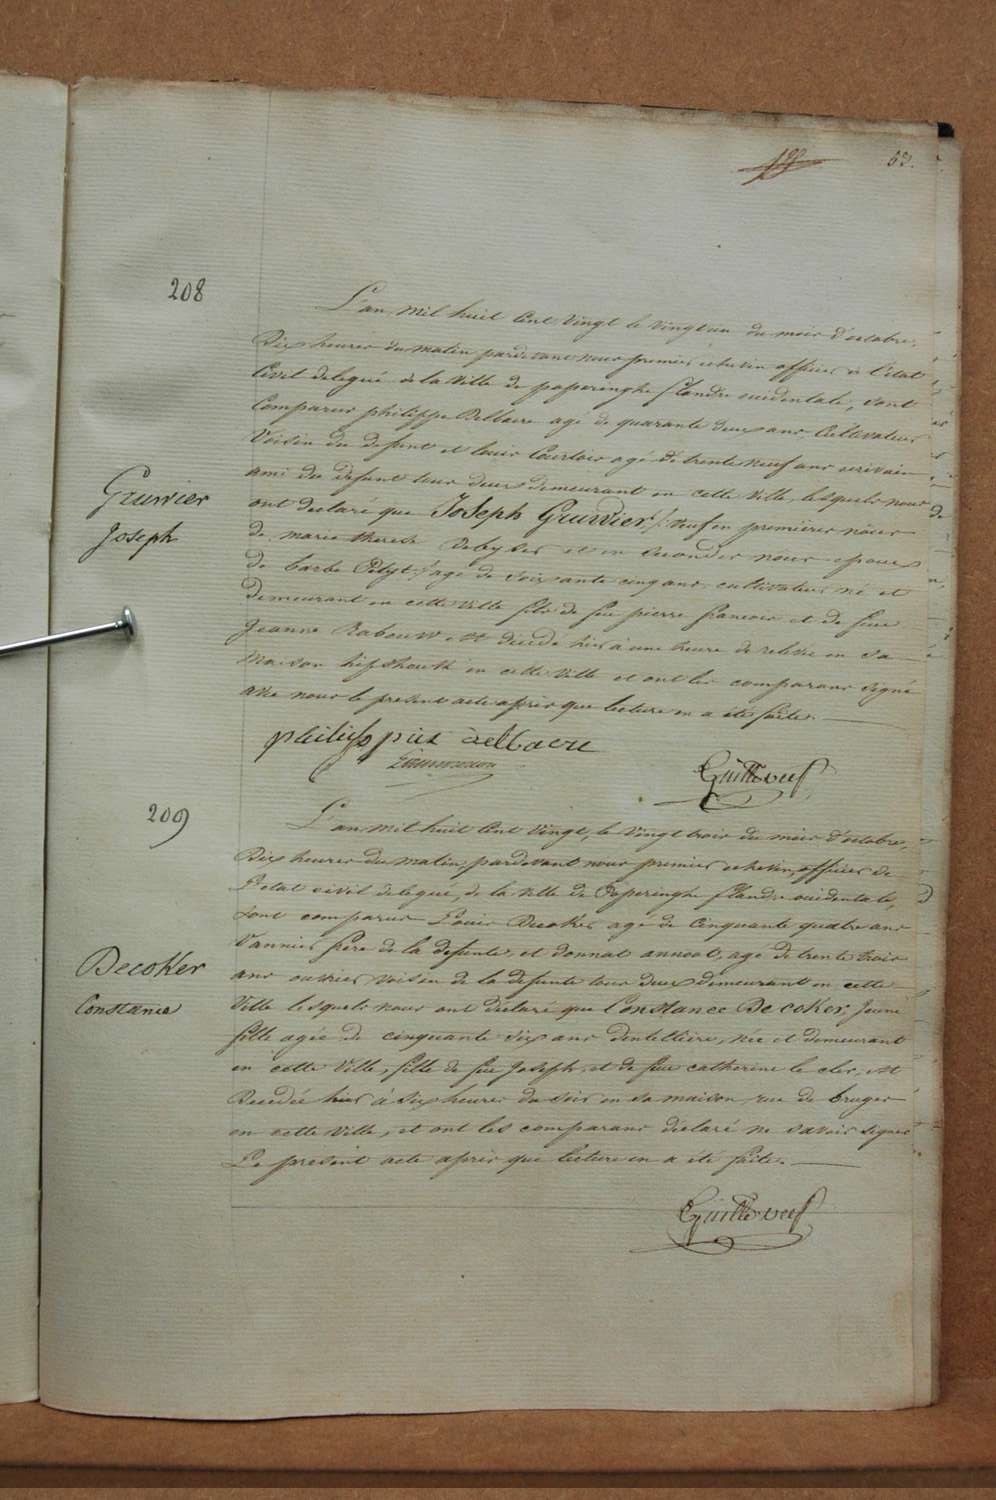 53.
208
L'an mil huit Cent Vingt le vingt un du mois d'octobre,
Dix heures du matin pardevant nous premier echevin officier de l'état
Civil delegué de la Ville de poperinghe flandre occidentale, sont
Comparus philippe Delbaere agé de quarante deux ans, Cultivateur
Voisin du defunt et louis Courtois agé de trente neuf ans ecrivain
ami du defunt tous deux demeurant en cette Ville, lesquels nous
ont declaré que Joseph Gruwier /: veuf en premières nôces
de marie therese Debyser et en secondes nôces epoux
de barbe Pelyt :/ agé de soixante cinq ans, cultivateur né et
demeurant en cette Ville fils de feu pierre francois et de feue
Jeanne Rabouw est décédé hier à une heure de relevée en sa
maison hipshoutk en cette Ville et ont les comparans signé
avec nous le present acte après que lecture en a été faite.
Gruwier
Joseph
philippus delbaere
Guillewees
209
L'an mil huit Cent Vingt, le vingt trois du mois d'octobre,
Dix heures du matin, pardevant nous premier echevin, officier de
L'etat civil delegué, de la Ville de Poperinghe flandre occidentale,
sont comparus Louis Decoker agé de cinquante quatre ans
Vannier frère de la defunte, et donnat annoot, agé de trente trois
ans ouvrier voisin de la defunte tous deux demeurant en cette
Ville lesquels nous ont déclaré que Constance Decoker, Jeune
fille agée de cinquante six ans dentellière, née et demeurant
en cette Ville, fille de feu Joseph, et de feue catherine le cler, est
Decedée hier à six heures du soir en sa maison rue de bruges
en cette Ville, et ont les comparans déclaré ne savoir signer
Le présent acte après que lecture en a été faite.
Decoker
Constance
Guillewees